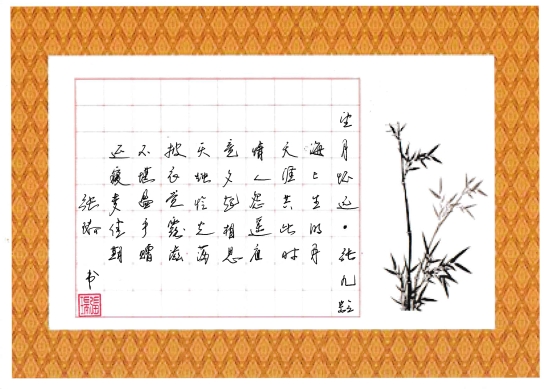 望月怀远·张九龄
海上生明月
天涯共此时
情人怨遥夜
竟夕起相思
灭烛怜光满
披衣觉露滋
不堪盈手赠
还寝梦佳期
张 书